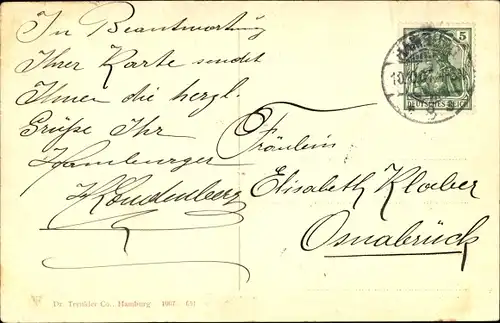 In Beantwortung
Ihrer Karte sendet
Ihnen die herzl.
Grüße Ihr
Hamburger
Fräulein
Elisabeth Kloeber
Osnabrück
5
DEUTSCHES REICH
Dr. Trenkler Co., Hamburg 1907.